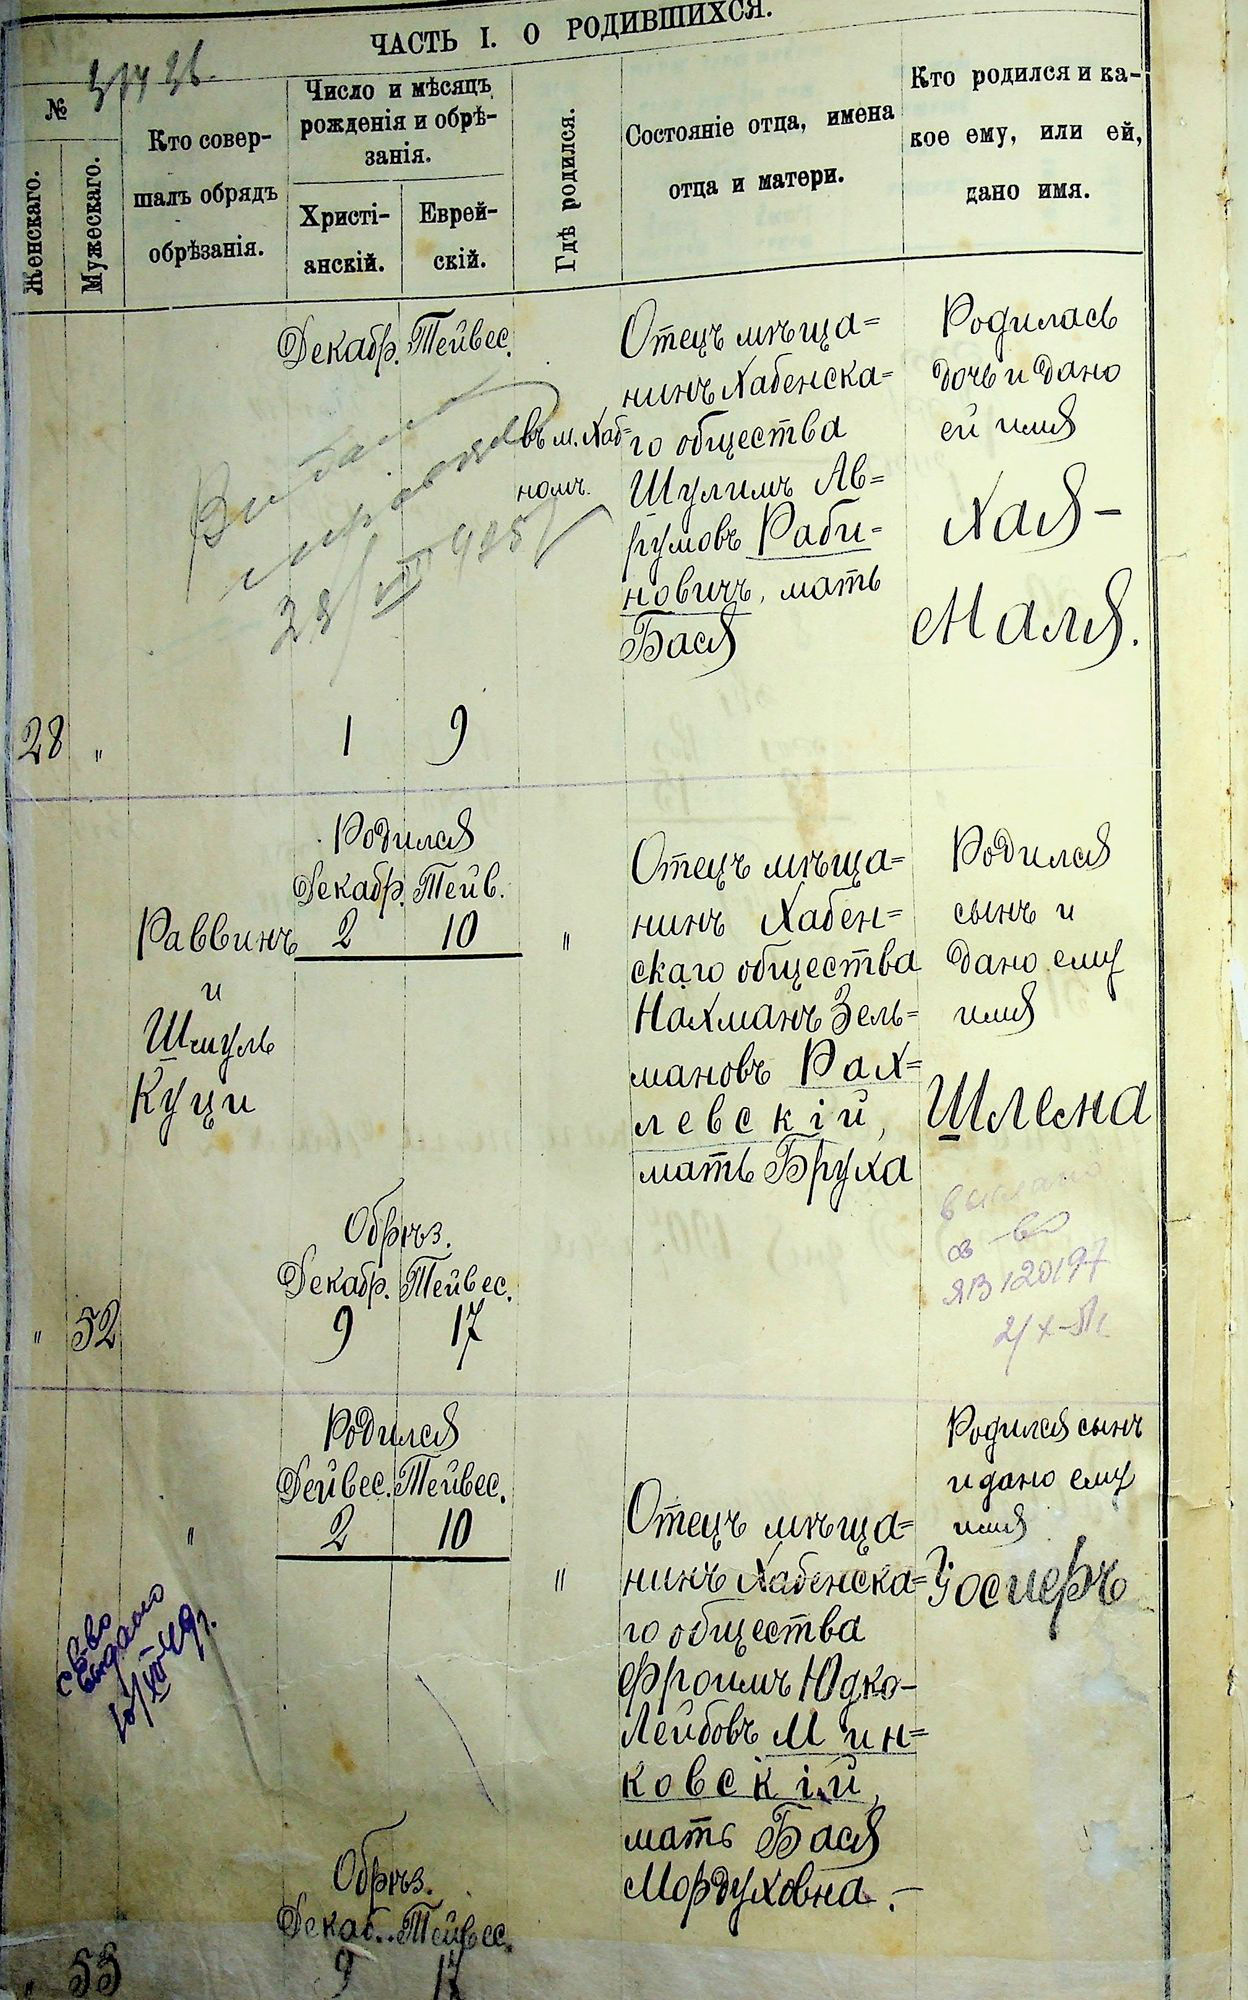 ЧАСТЬ I. О РОДИВШИХСЯ.
№
Женскаго.
Мужескаго.
Кто совер-
шалъ обрядъ
обрѣзанія.
Число и мѣсяцъ
рожденія и обрѣ-
занія.
Христі-
анскій.
Еврей-
скій.
Гдѣ родился.
Состояніе отца, имена
отца и матери.
Кто родился и ка-
кое ему, или ей,
дано имя.
28
"
Декабр. Тейвес.
1 9
въ м. Хаб=
номъ.
Отецъ мѣща=
нинъ Хабенска=
го общества
Шулимъ Ав=
румовъ Раби-
новичъ, мать
Бася
Родилась
дочь и дано
ей имя
Хая-
Маля.
" 52
Раввинъ
и
Шмуль
Куци
Родился
Декабр. Тейв.
2 10
Обрѣз.
Декабр. Тейвес.
9 17
"
Отецъ мѣща=
нинъ Хабен=
скаго общества
Нахманъ Зель=
мановъ Рах=
левскій,
мать Бруха
Родился
сынъ и
дано ему
имя
Шлема
ЯВ 120197
" 53
"
Родился
Дейвес. Тейвес.
2 10
Обрѣз.
Декаб.. Тейвес.
9 17
"
Отецъ мѣща=
нинъ Хабенска=
го общества
Фроимъ Юдко-
Лейбовъ Мин=
ковскій,
мать Бася
Мордуховна.-
Родился сынъ
и дано ему
имя
св-во
выдано